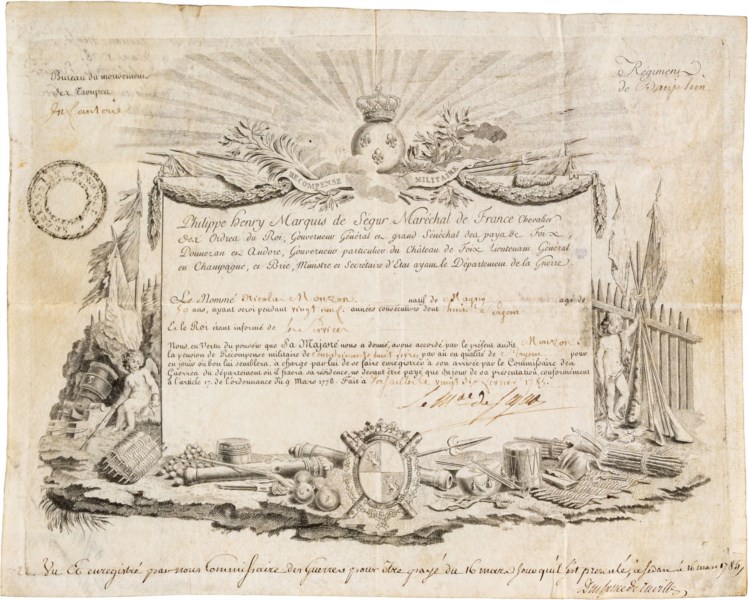 Bureau du mouvement
des Troupes
Régiment
de
RECOMPENSE MILITAIRE
Philippe Henry Marquis de Ségur Maréchal de France Chevalier
des Ordres du Roi, Gouverneur Général et grand Sénéchal des pays de Foix,
Donnezan et Andore, Gouverneur particulier du Château de Foix Lieutenant Général
en Champagne, et Brie, Ministre et Secretaire d'Etat ayant le Département de la Guerre.
Le Nommé Nicolas Monzon natif de Magny agé de
50 ans, ayant servi pendant vingt neuf années consécutives dont
Et le Roi étant informé de ses services
Nous, en Vertu du pouvoir que Sa Majesté nous a donné, avons accordé par le présent audit Monzon
la pension de Récompense militaire de par an en qualité de pour
en jouir où bon lui semblera, à charge par lui de se faire enregistrer à son arrivée par le Commissaire des
Guerres du département où il fixera sa résidence, ne devant être payé que du jour de sa présentation, conformément
à l'article 17. de l'ordonnance du 9 Mars 1778. Fait à Versailles le vingt
Le Mal de Segur
Vu Et enregistré par nous Commissaire des Guerres pour être payé du 16 mars Jour qu'il s'est présenté, à Sedan le 16 mars